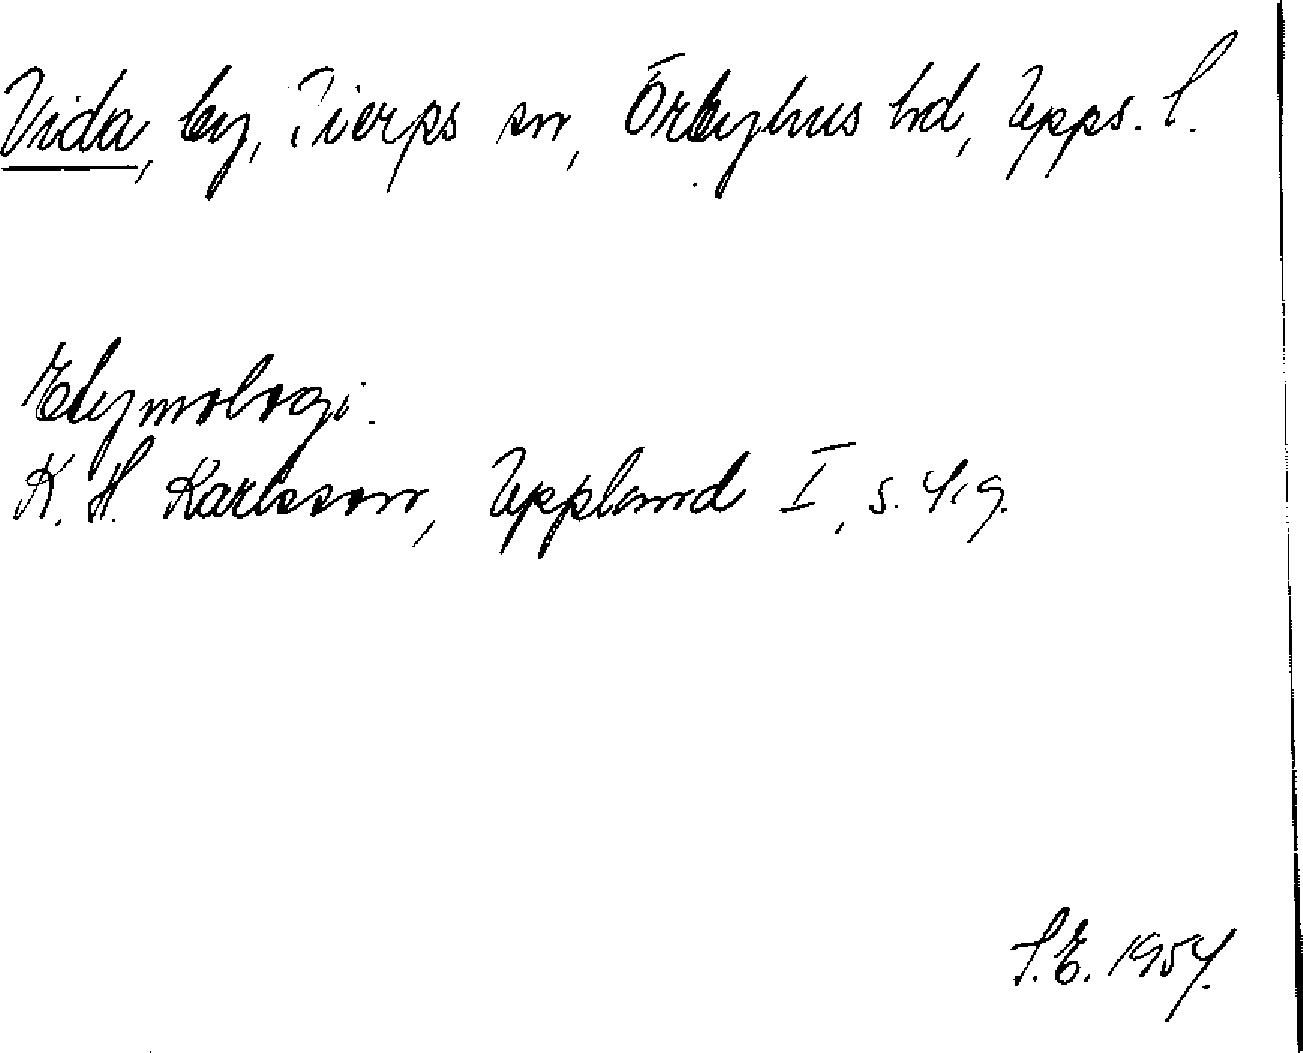 Vida, by, Tierps sn, Örbyhus hd, Upps. l.
Etymologi.
K. H. Karlsson, Uppland I, s. 419.
S.E. 1954.